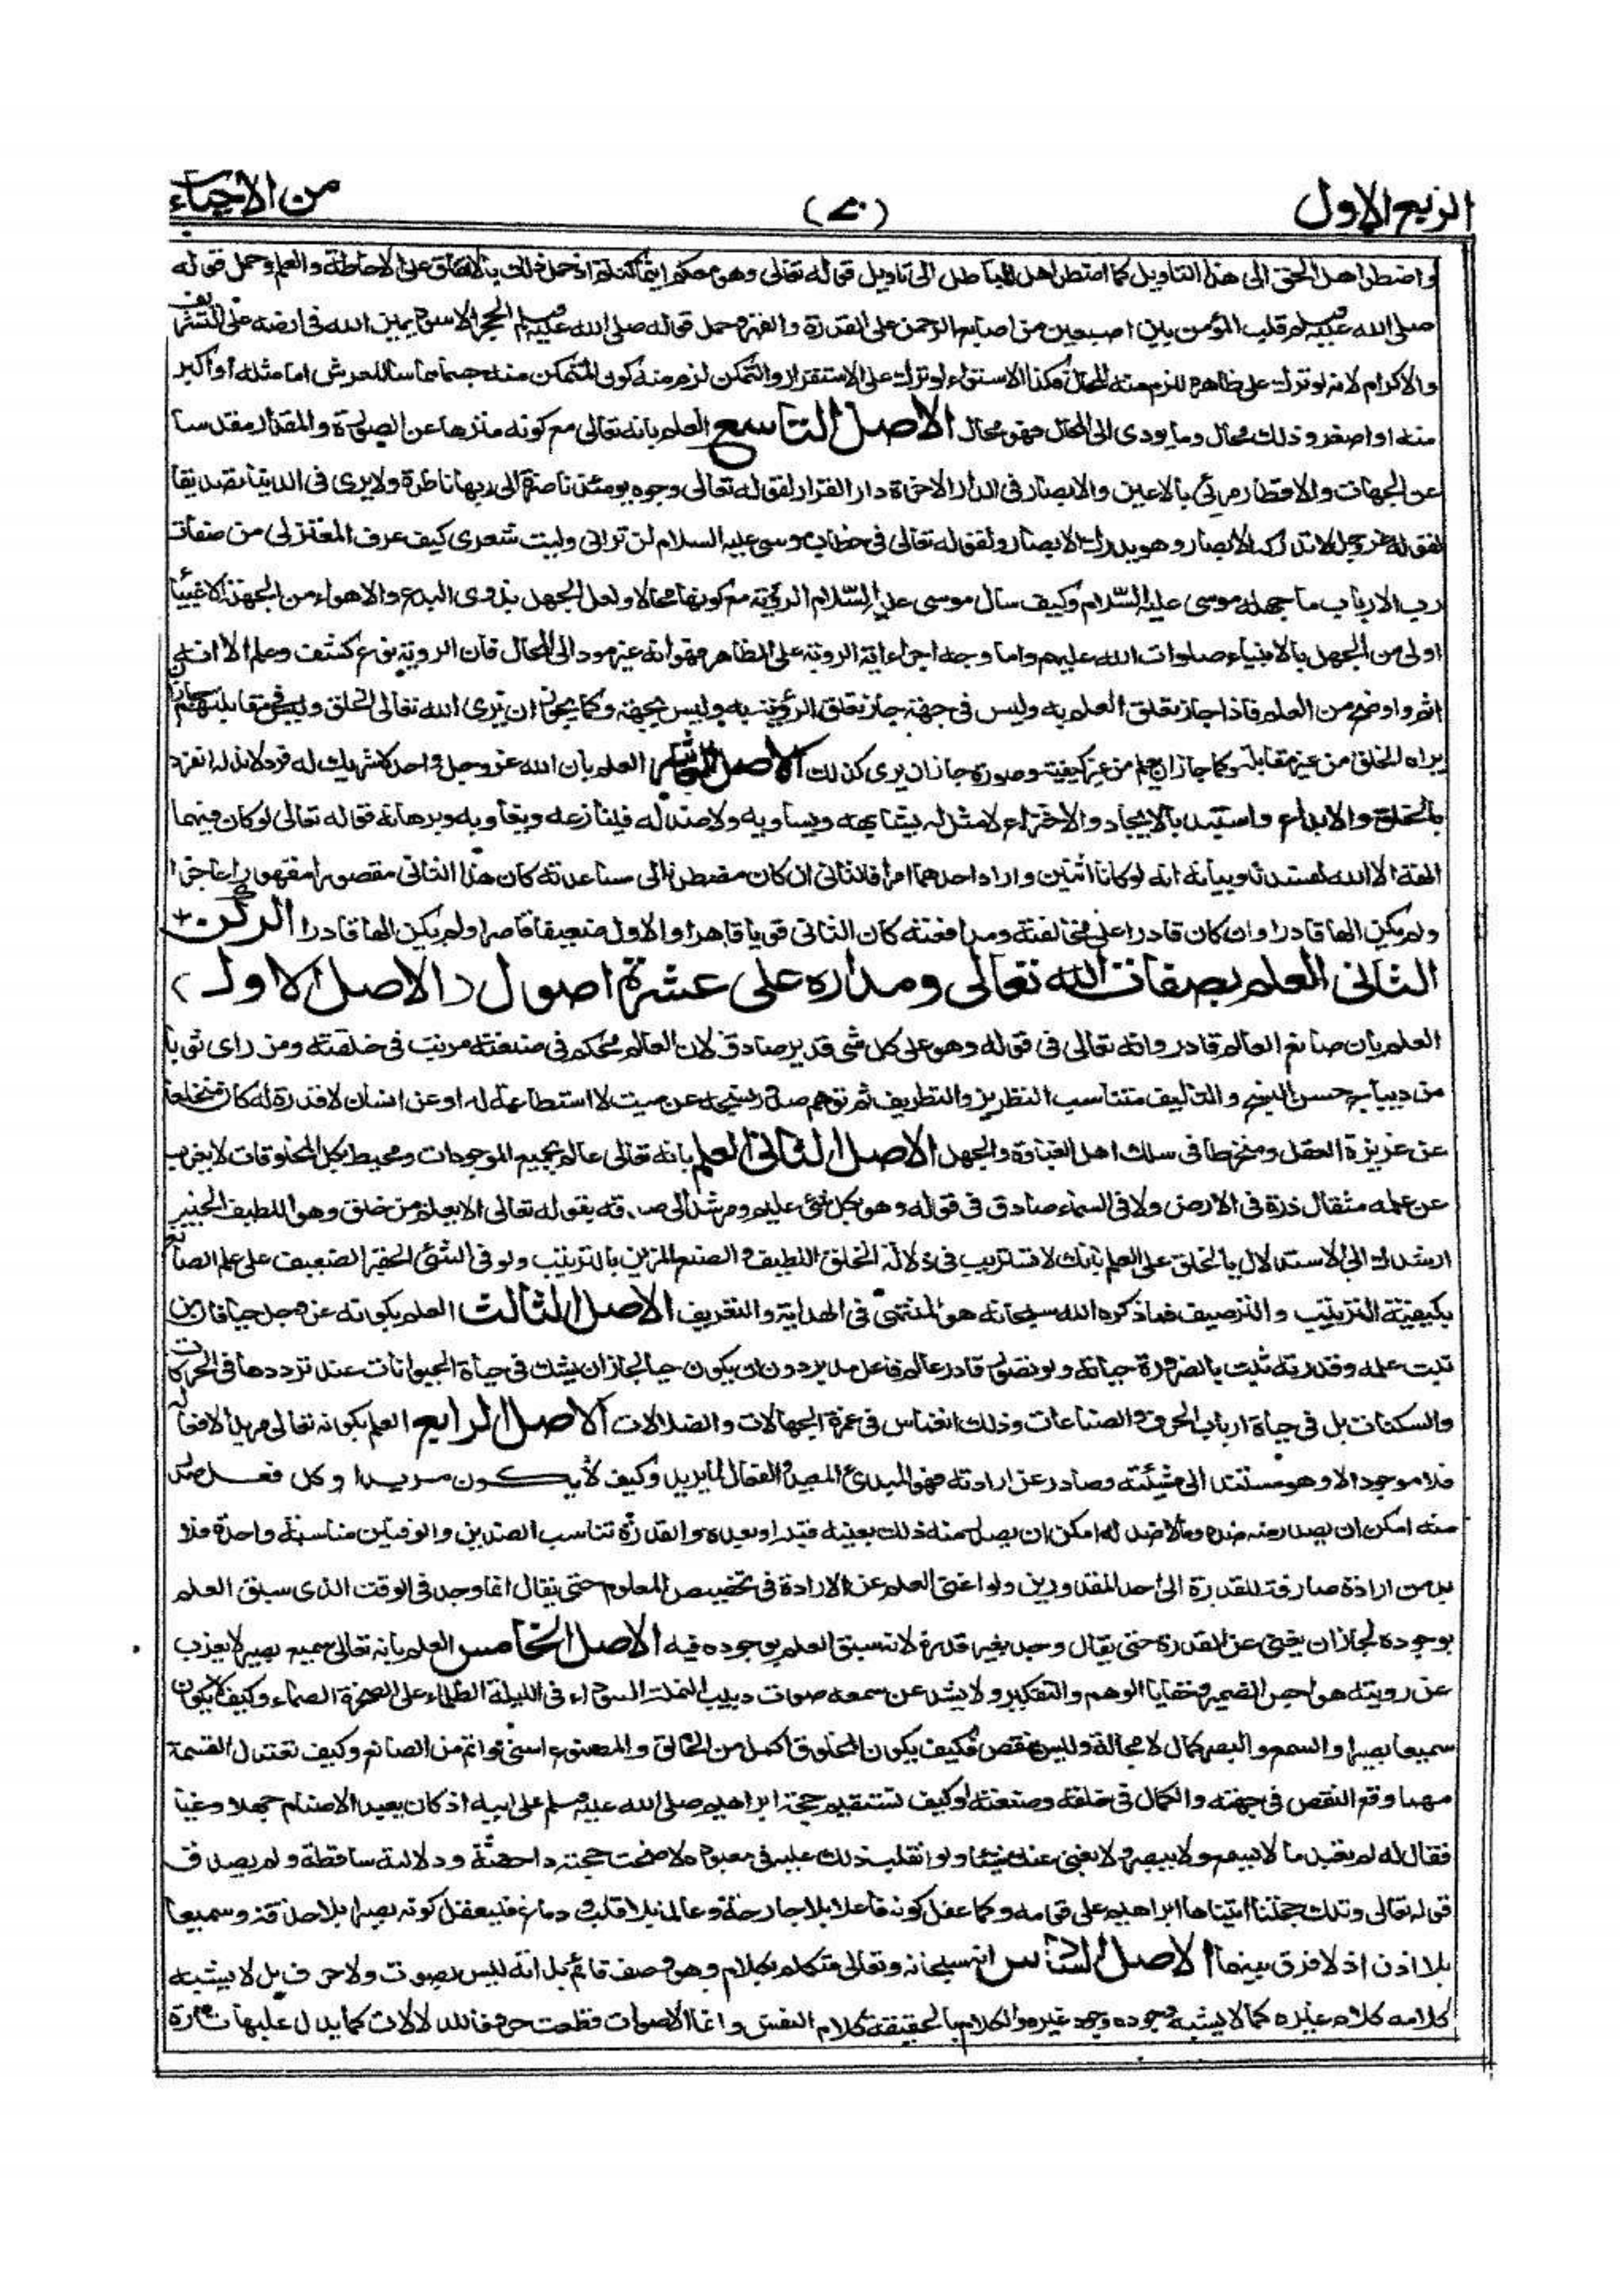 الربع الاول
(٧٠)
من الاحياء
واضطر اهل الحق الى هذا التاويل كما اضطر اهل الباطل الى تاويل قوله تعالى وهو معكم اينما كنتم اذ حمل ذلك بالاتفاق على الاحاطة والعلم وحمل قوله
صلى الله عليه وسلم قلب المؤمن بين اصبعين من اصابع الرحمن على القدرة والقهر وحمل قوله صلى الله عليه وسلم الحجر الاسود يمين الله فى ارضه على التشريف
والاكرام لانه لو ترك على ظاهره للزم منه المحال فكذا الاستواء لو ترك على الاستقرار والتمكن لزم منه كون المتمكن منه جسما مماسا للعرش اما مثله او اكبر
منه او اصغر وذلك محال وما يودى الى المحال فهو محال الاصل التاسع العلم بانه تعالى مع كونه منزها عن الصورة والمقدار مقدسا
عن الجهات والاقطار مرئى بالاعين والابصار فى الدار الاخرة دار القرار لقوله تعالى وجوه يومئذ ناضرة الى ربها ناظرة ولا يرى فى الدنيا تصديقا
لقوله عز وجل لا تدركه الابصار وهو يدرك الابصار ولقوله تعالى فى خطاب موسى عليه السلام لن ترانى وليت شعرى كيف عرف المعتزلى من صفات
رب الارباب ما جهله موسى عليه السلام وكيف سال موسى عليه السلام الرؤية مع كونها محالا ولعل الجهل بذوى البدع والاهواء من الجهلة الاغبياء
اولى من الجهل بالانبياء صلوات الله عليهم واما وجه اجراء اية الروية على الظاهر فهو انه غير مود الى المحال فان الروية نوع كشف وعلم الا انه
اتم واوضح من العلم فاذا جاز تعلق العلم به وليس فى جهة جاز تعلق الرؤية به وليس بجهة وكما يجوز ان يرى الله تعالى الخلق وليس فى مقابلتهم جاز ان
يراه الخلق من غير مقابلة وكما جاز ان يعلم من غير كيفية وصورة جاز ان يرى كذلك الاصل العاشر العلم بان الله عز وجل واحد لا شريك له فرد لا ند له انفرد
بالخلق والابداع واستبد بالايجاد والاختراع لا مثل له يشابهه ويساويه ولا ضد له فينازعه ويناويه وبرهانه قوله تعالى لو كان فيهما
الهة الا الله لفسدتا وبيانه انه لو كانا اثنين واراد احدهما امرا فالثانى ان كان مضطرا الى مساعدته كان هذا الثانى مقصورا مقهورا عاجزا
ولم يكن الها قادرا وان كان قادرا على مخالفته ومدافعته كان الثانى قويا قاهرا والاول ضعيفا قاصرا ولم يكن الها قادرا الركن
الثانى العلم بصفات الله تعالى ومداره على عشرة اصول (الاصل الاول)
العلم بان صانع العالم قادر وانه تعالى فى قوله وهو على كل شى قدير صادق لان العالم محكم فى صنعته مرتب فى خلقته ومن راى ثوبا
من ديباج حسن النسج والتاليف متناسب التطريز والتطريف ثم توهم صدور نسجه عن ميت لا استطاعة له او عن انسان لا قدرة له كان منخلعا
عن غريزة العقل ومنخرطا فى سلك اهل الغباوة والجهل الاصل الثانى العلم بانه تعالى عالم بجميع الموجودات ومحيط بكل المخلوقات لا يعزب
عن علمه مثقال ذرة فى الارض ولا فى السماء صادق فى قوله وهو بكل شئ عليم ومرشد الى صدقه بقوله تعالى الا يعلم من خلق وهو اللطيف الخبير
ارشدك الى الاستدلال بالخلق على العلم بانك لا تستريب فى دلالة الخلق اللطيف والصنع المزين بالترتيب ولو فى الشئ الحقير الضعيف على علم الصانع
بكيفية الترتيب والترصيف فما ذكره الله سبحانه هو المنتهى فى الهداية والتعريف الاصل الثالث العلم بكونه عز وجل حيا فان من
ثبت علمه وقدرته ثبت بالضرورة حياته ولو تصور قادر عالم فاعل مدبر دون ان يكون حيا لجاز ان يشك فى حياة الحيوانات عند ترددها فى الحركات
والسكنات بل فى حياة ارباب الحرف والصناعات وذلك انغماس فى غمرة الجهالات والضلالات الاصل الرابع العلم بكونه تعالى مريدا لافعاله
فلا موجود الا وهو مستند الى مشيئته وصادر عن ارادته فهو المبدئ المعيد والفعال لما يريد وكيف لا يكون مريدا وكل فعل صدر
منه امكن ان يصدر منه ضده وما لا ضد له امكن ان يصدر منه ذلك بعينه قبله او بعده والقدرة تناسب الضدين والوقتين مناسبة واحدة فلا
بد من ارادة صارفة للقدرة الى احد المقدورين ولو اغنى العلم عن الارادة فى تخصيص المعلوم حتى يقال انما وجد فى الوقت الذى سبق العلم
بوجوده لجاز ان يغنى عن القدرة حتى يقال وجد بغير قدرة لانه سبق العلم بوجوده فيه الاصل الخامس العلم بانه تعالى سميع بصير لا يعزب
عن رويته هواجس الضمير وخفايا الوهم والتفكير ولا يشذ عن سمعه صوت دبيب النملة السوداء فى الليلة الظلماء على الصخرة الصماء وكيف لا يكون
سميعا بصيرا والسمع والبصر كمال لا محالة وليس بنقص فكيف يكون المخلوق اكمل من الخالق والمصنوع اسنى واتم من الصانع وكيف تعتدل القسمة
مهما وقع النقص فى جهته والكمال فى خلقه وصنعته او كيف تستقيم حجة ابراهيم صلى الله عليه وسلم على ابيه اذ كان يعبد الاصنام جهلا وغيا
فقال له لم تعبد ما لا يسمع ولا يبصر ولا يغنى عنك شيئا ولو انقلب ذلك عليه فى معبوده لاضحت حجته داحضة ودلالته ساقطة ولم يصدق
قوله تعالى وتلك حجتنا اتيناها ابراهيم على قومه وكما عقل كونه فاعلا بلا جارحة وعالما بلا قلب ودماغ فليعقل كونه بصيرا بلا حدقة وسميعا
بلا اذن اذ لا فرق بينهما الاصل السادس انه سبحانه وتعالى متكلم بكلام وهو وصف قائم بذاته ليس بصوت ولا حرف بل لا يشبه
كلامه كلام غيره كما لا يشبه وجوده وجود غيره والكلام بالحقيقة كلام النفس وانما الاصوات قطعت حروفا للدلالات كما يدل عليها تارة